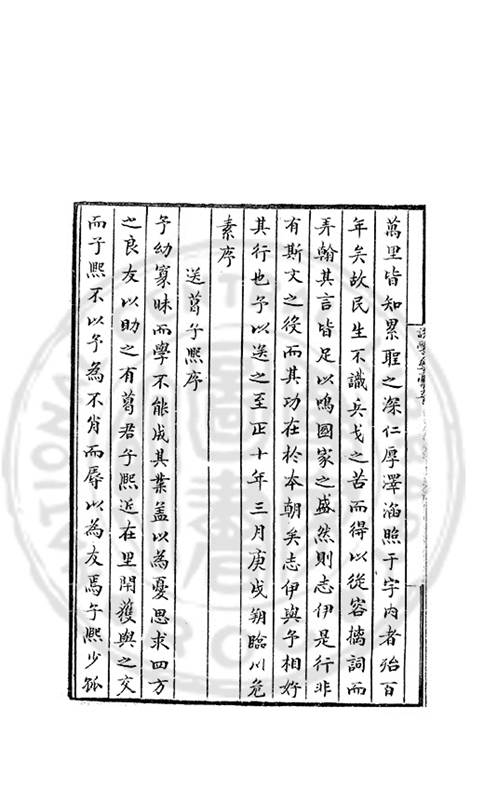 萬里皆知累聖之深仁厚澤涵煦于宇内者殆百
年矣故民生不識兵戈之苦而得以從容摛詞而
弄翰其言皆足以鳴國家之盛然則志伊是行非
有斯文之役而其功在於本朝矣志伊與予相好
其行也予以送之至正十年三月庚戌朔臨川危
素序
送葛子熙序
予幼篡昧而學不能成其業盖以為憂思求四方
之良友以助之有葛君子熙近在里閈獲與之交
而子熙不以予為不肖而辱以為友焉子熙少孤